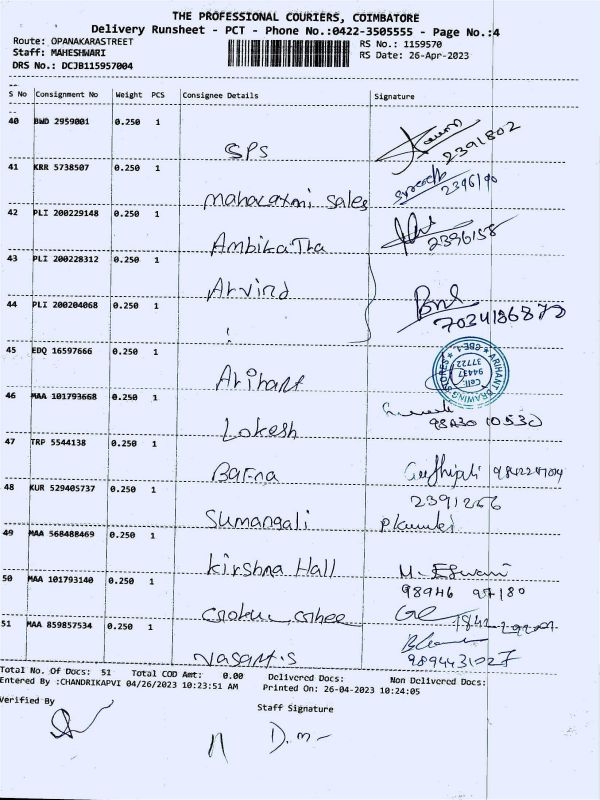 THE PROFESSIONAL COURIERS, COIMBATORE
Delivery Runsheet - PCT - Phone No.:0422-3505555 - Page No.:4
Route: OPANAKARASTREET
RS No.: 1159570
Staff: MAHESHWARI
RS Date: 26-Apr-2023
DRS No.: DCJB115957004
S No Consignment No Weight PCS Consignee Details Signature
40 BWD 2959001 0.250 1
SPS 2391802
41 KRR 5738507 0.250 1
mahalaxmi sales 2396190
42 PLI 200229148 0.250 1
Ambika Tha 2396158
43 PLI 200228312 0.250 1
Arvind
44 PLI 200204068 0.250 1
45 EDQ 16597666 0.250 1
Arihant
ARIHANT DRAWING STORES
CBE-1.
Cell: 94437 37722
46 MAA 101793668 0.250 1
Lokesh 98430 10530
47 TRP 5544138 0.250 1
Barna
48 KUR 529405737 0.250 1
2391266
Sumangali
49 MAA 568488469 0.250 1
Kirshna Hall
50 MAA 101793140 0.250 1
98946 97180
51 MAA 859857534 0.250 1
9894431027
Total No. Of Docs: 51 Total COD Amt: 0.00 Delivered Docs: Non Delivered Docs:
Entered By :CHANDRIKAPVI 04/26/2023 10:23:51 AM Printed On: 26-04-2023 10:24:05
Verified By
Staff Signature
D.m